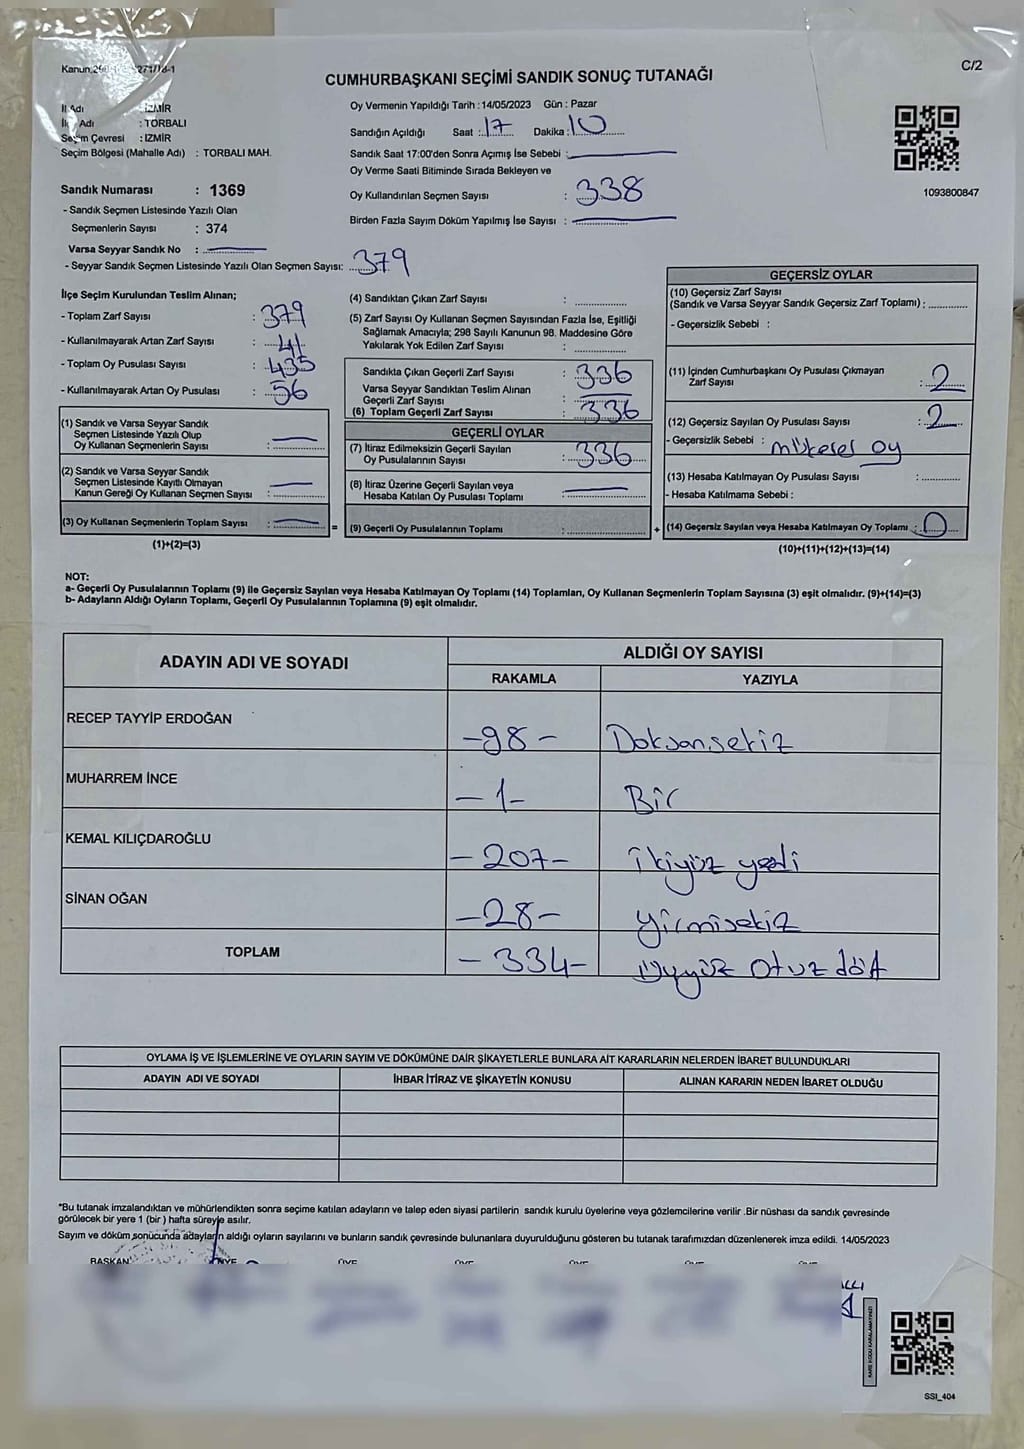 C/2
CUMHURBAŞKANI SEÇİMİ SANDIK SONUÇ TUTANAĞI
İl Adı : İZMİR
Adı : TORBALI
Seçim Çevresi : İZMİR
Seçim Bölgesi (Mahalle Adı) : TORBALI MAH.
Sandık Numarası : 1369
- Sandık Seçmen Listesinde Yazılı Olan
Seçmenlerin Sayısı : 374
Varsa Seyyar Sandık No :
- Seyyar Sandık Seçmen Listesinde Yazılı Olan Seçmen Sayısı: 379
Oy Vermenin Yapıldığı Tarih : 14/05/2023 Gün : Pazar
Sandığın Açıldığı Saat : 17 Dakika : 10
Sandık Saat 17:00'den Sonra Açımış İse Sebebi :
Oy Verme Saati Bitiminde Sırada Bekleyen ve
Oy Kullandırılan Seçmen Sayısı : 338
Birden Fazla Sayım Döküm Yapılmış İse Sayısı :
1093800847
İlçe Seçim Kurulundan Teslim Alınan;
- Toplam Zarf Sayısı : 379
- Kullanılmayarak Artan Zarf Sayısı : 41
- Toplam Oy Pusulası Sayısı : 435
- Kullanılmayarak Artan Oy Pusulası : 56
(1) Sandık ve Varsa Seyyar Sandık
Seçmen Listesinde Yazılı Olup
Oy Kullanan Seçmenlerin Sayısı :
(2) Sandık ve Varsa Seyyar Sandık
Seçmen Listesinde Kayıtlı Olmayan
Kanun Gereği Oy Kullanan Seçmen Sayısı :
(3) Oy Kullanan Seçmenlerin Toplam Sayısı : =
(1)+(2)=(3)
(4) Sandıktan Çıkan Zarf Sayısı :
(5) Zarf Sayısı Oy Kullanan Seçmen Sayısından Fazla İse, Eşitliği
Sağlamak Amacıyla; 298 Sayılı Kanunun 98. Maddesine Göre
Yakılarak Yok Edilen Zarf Sayısı :
Sandıkta Çıkan Geçerli Zarf Sayısı : 336
Varsa Seyyar Sandıktan Teslim Alınan
Geçerli Zarf Sayısı :
(6) Toplam Geçerli Zarf Sayısı : 336
GEÇERLİ OYLAR
(7) İtiraz Edilmeksizin Geçerli Sayılan
Oy Pusulalarının Sayısı : 336
(8) İtiraz Üzerine Geçerli Sayılan veya
Hesaba Katılan Oy Pusulası Toplamı :
(9) Geçerli Oy Pusulalarının Toplamı : +
GEÇERSİZ OYLAR
(10) Geçersiz Zarf Sayısı
(Sandık ve Varsa Seyyar Sandık Geçersiz Zarf Toplamı) :
- Geçersizlik Sebebi :
(11) İçinden Cumhurbaşkanı Oy Pusulası Çıkmayan
Zarf Sayısı : 2
(12) Geçersiz Sayılan Oy Pusulası Sayısı : 2
- Geçersizlik Sebebi : mükerer oy
(13) Hesaba Katılmayan Oy Pusulası Sayısı :
- Hesaba Katılmama Sebebi :
(14) Geçersiz Sayılan veya Hesaba Katılmayan Oy Toplamı : 0
(10)+(11)+(12)+(13)=(14)
NOT:
a- Geçerli Oy Pusulalarının Toplamı (9) ile Geçersiz Sayılan veya Hesaba Katılmayan Oy Toplamı (14) Toplamları, Oy Kullanan Seçmenlerin Toplam Sayısına (3) eşit olmalıdır. (9)+(14)=(3)
b- Adayların Aldığı Oyların Toplamı, Geçerli Oy Pusulalarının Toplamına (9) eşit olmalıdır.
ADAYIN ADI VE SOYADI ALDIĞI OY SAYISI
RAKAMLA YAZIYLA
RECEP TAYYİP ERDOĞAN -98- Doksansekiz
MUHARREM İNCE -1- Bir
KEMAL KILIÇDAROĞLU -207- ikiyüz yedi
SİNAN OĞAN -28- yirmisekiz
TOPLAM -334- Üçyüz otuz dört
OYLAMA İŞ VE İŞLEMLERİNE VE OYLARIN SAYIM VE DÖKÜMÜNE DAİR ŞİKAYETLERLE BUNLARA AİT KARARLARIN NELERDEN İBARET BULUNDUKLARI
ADAYIN ADI VE SOYADI İHBAR İTİRAZ VE ŞİKAYETİN KONUSU ALINAN KARARIN NEDEN İBARET OLDUĞU
*Bu tutanak imzalandıktan ve mühürlendikten sonra seçime katılan adayların ve talep eden siyasi partilerin sandık kurulu üyelerine veya gözlemcilerine verilir .Bir nüshası da sandık çevresinde
görülecek bir yere 1 (bir ) hafta süreyle asılır.
Sayım ve döküm sonucunda adayların aldığı oyların sayılarını ve bunların sandık çevresinde bulunanlara duyurulduğunu gösteren bu tutanak tarafımızdan düzenlenerek imza edildi. 14/05/2023
BAŞKAN ÜYE ÜYE ÜYE ÜYE
SSI_404